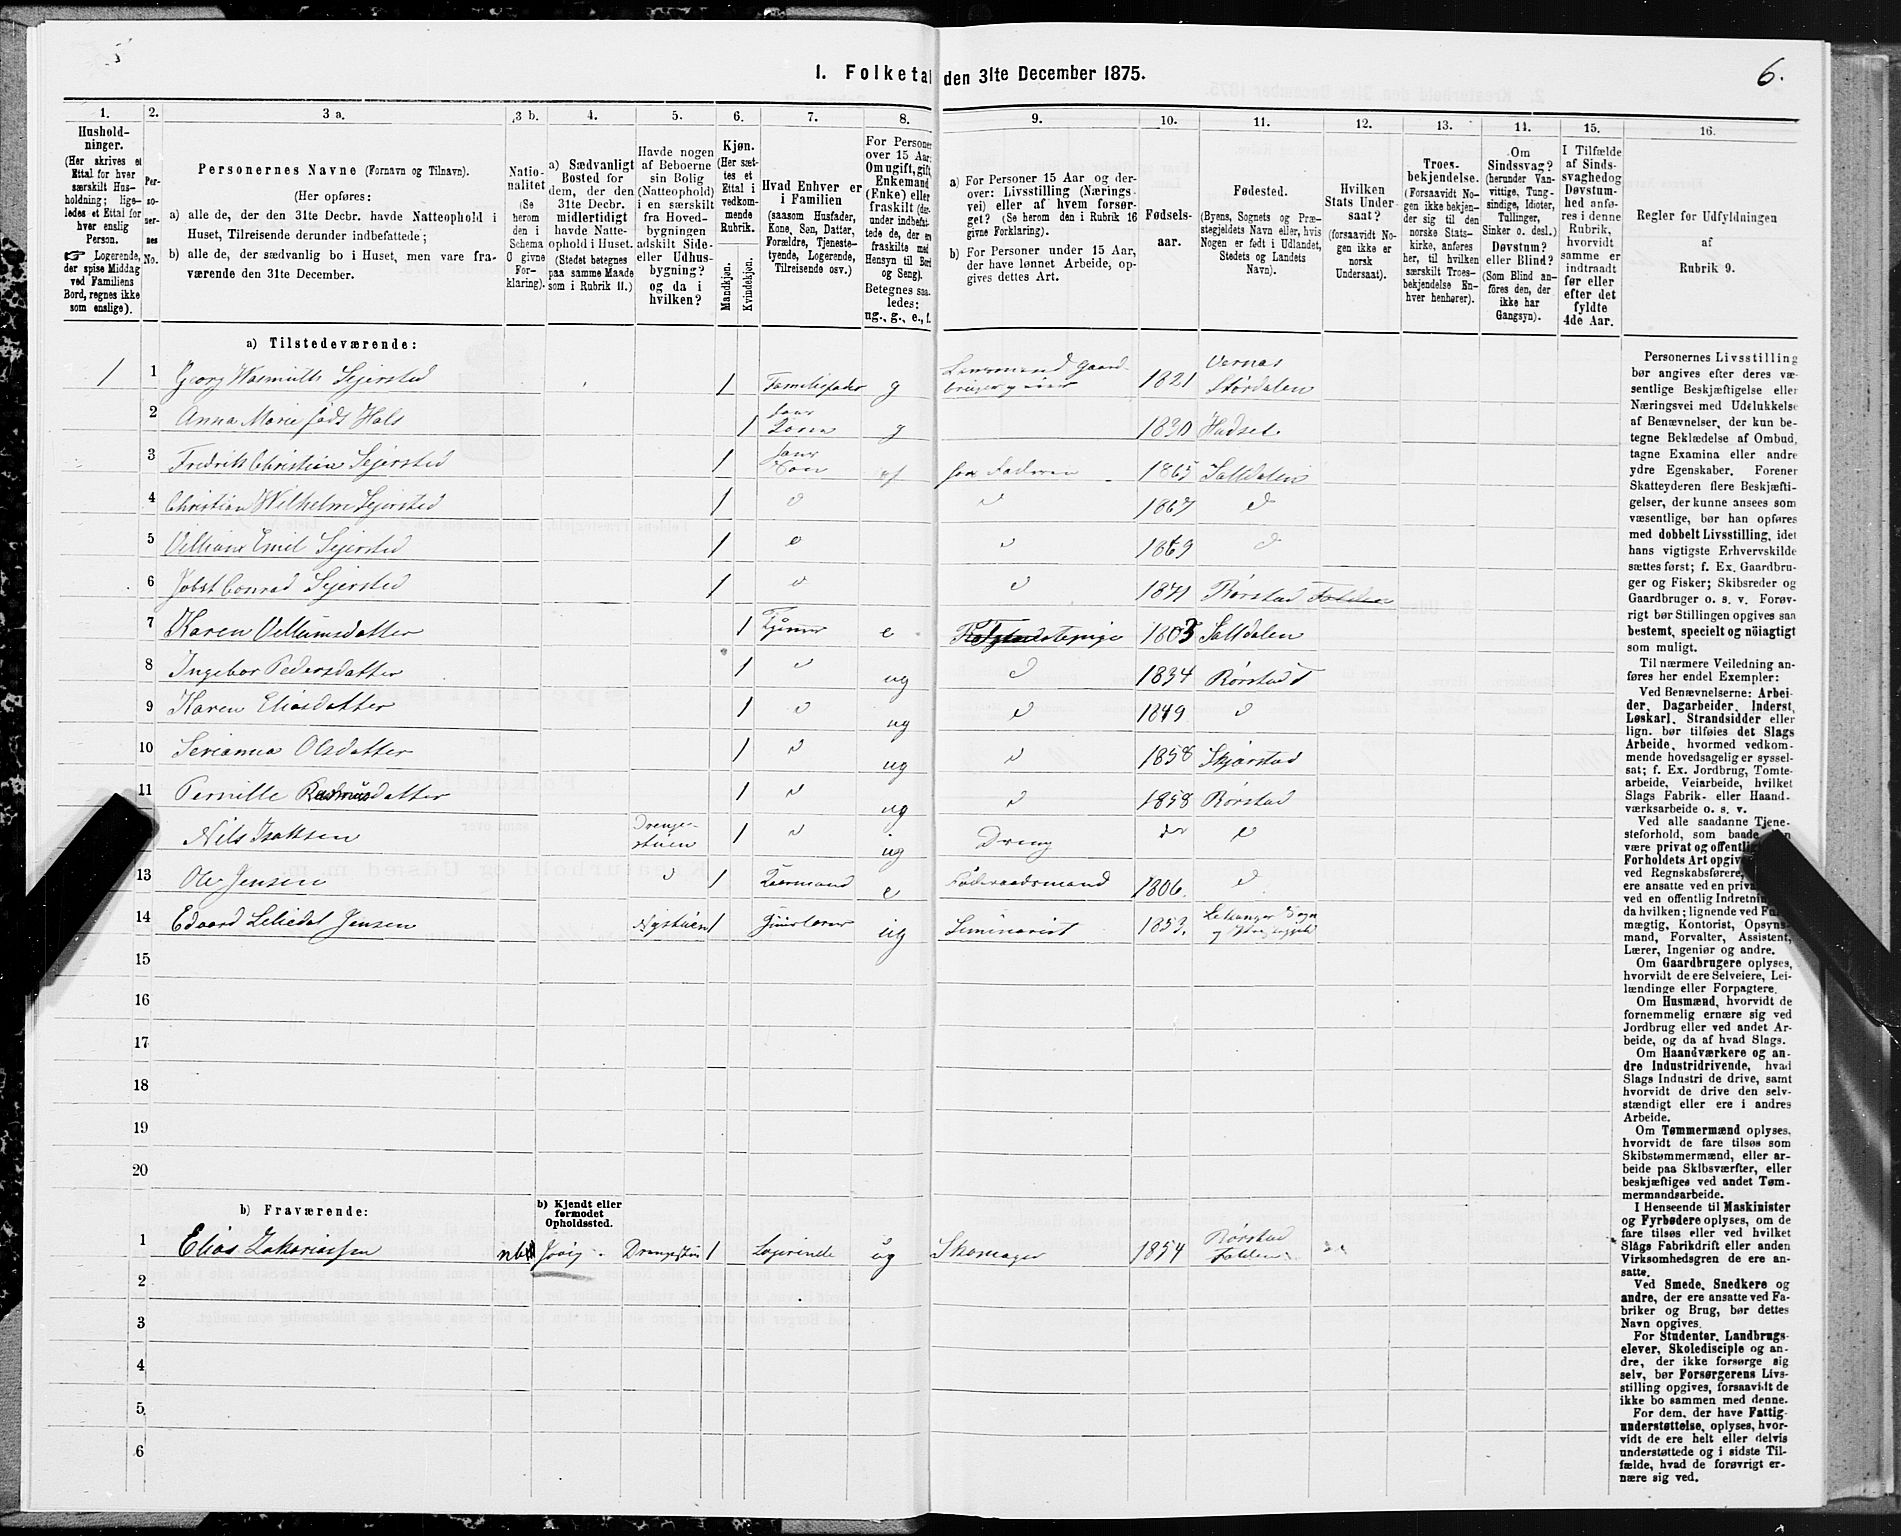 6.
I. Folketal den 31te December 1875.
1.
Hushold-
ninger.
(Her skrives et
Ettal for hver
særskilt Hus-
holdning; lige-
ledes et Ettal for
hver enslig
Person.
☞ Logerende,
der spise Middag
ved Familiens
Bord, regnes ikke
som enslige).
2.
Per-
so-
ner-
nes
No.
3 a.
Personernes Navne (Fornavn og Tilnavn).
(Her opføres:
a) alle de, der den 31te Decbr. havde Natteophold i
Huset, Tilreisende derunder indbefattede;
b) alle de, der sædvanlig bo i Huset, men vare fra-
værende den 31te December.
3 b.
Natio-
nalitet
(Se
herom
den i
Schema
O givne
For-
klaring).
4.
a) Sædvanligt
Bosted for
dem, der den
31te Decbr.
midlertidigt
havde Natte-
ophold i Huset.
(Stedet betegnes
paa samme Maade
som i Rubrik 11.)
5.
Havde nogen
af Beboerne
sin Bolig
(Natteophold)
i en særskilt
fra Hoved-
bygningen
adskilt Side-
eller Udhus-
bygning?
og da i
hvilken?
6.
Kjøn.
(Her sæt-
tes et
Ettal i
vedkom-
mende
Rubrik.
Mandkjøn.
Kvindekjøn.
7.
Hvad Enhver er
i Familien
(saasom Husfader,
Kone, Søn, Datter,
Forældre, Tjeneste-
tyende, Logerende,
Tilreisende osv.)
8.
For Personer
over 15 Aar:
Om ugift, gift,
Enkemand
(Enke) eller
fraskilt (der-
under indbefat-
tede de, der ere
fraskilte med
Hensyn til Bord
og Seng).
Betegnes saa-
ledes:
ug., g., e., f.
9.
a) For Personer 15 Aar og der-
over: Livsstilling (Nærings-
vei) eller af hvem forsør-
get? (Se herom den i Rubrik 16
givne Forklaring).
b) For Personer under 15 Aar,
der have lønnet Arbeide, op-
gives dettes Art.
10.
Fødsels-
aar.
11.
Fødested.
(Byens, Sognets og Præ-
stegjeldets Navn eller, hvis
Nogen er født i Udlandet,
Stedets og Landets
Navn).
12.
Hvilken
Stats Under-
saat?
(forsaavidt No-
gen ikke er
norsk
Undersaat).
13.
Troes-
bekjendelse.
(Forsaavidt No-
gen ikke bekjen-
der sig til den
norske Stats-
kirke, anføres
her, til hvilken
særskilt Troes-
bekjendelse En-
hver henhører).
14.
Om
Sindssvag?
(herunder Van-
vittige, Tung-
sindige, Idioter,
Tullinger,
Sinker o. desl.)
Døvstum?
eller Blind?
(Som Blind an-
føres den, der
ikke har
Gangsyn).
15.
I Tilfælde
af Sinds-
svaghed og
Døvstum-
hed anfø-
res i denne
Rubrik,
hvorvidt
samme er
indtraadt
før eller
efter det
fyldte
4de Aar.
16.
Regler for Udfyldningen
af
Rubrik 9.
a) Tilstedeværende:
1 1 Georg Wasmuth Sejersted 1 Familiefader g Lensmand Gaard- bruger 1821 Vernæs Størdalen
2 Anna Marie født Hals 1 Kone g 1830 Hadsel
3 Fredrik Christian Sejersted 1 Søn Faderen 1865 Saltdalen
4 Christian Wilhelm Sejersted 1 " " 1867 "
5 Villiam Emil Sejersted 1 " " 1869 "
6 Jobst Conrad Sejersted 1 " " 1871 Rørstad Folden
7 Karen Villumsdatter 1 e 1803 Saltdalen
8 Ingebor Pedersdatter 1 " ug " 1834 Rørstad
9 Karen Eliasdatter 1 " ug " 1849 "
10 Serianna Olsdatter 1 " ug " 1858 Skjerstad
11 Pernille Rasmusdatter 1 " ug " 1858 Rørstad
Nils Isaksen Drenge- stuen 1 " ug Dreng "
13 Ole Jensen " 1 e Føderaadsmand 1806. "
14 Edvard Jensen Nystuen 1 ug Seminarist 1853.
15
16
17
18
19
20
b) Fraværende:
b) Kjendt eller
formodet
Opholdssted.
1 Elias Zakariassen Drengestuen 1 Logerende ug Skomager 1854 Rørstad Folden
2
3
4
5
6
Personernes Livsstilling
bør angives efter deres væ-
sentlige Beskjæftigelse eller
Næringsvei med Udelukkelse
af Benævnelser, der kun be-
tegne Beklædelse af Ombud,
tagne Examina eller andre
ydre Egenskaber. Forener
Skatteyderen flere Beskjæfti-
gelser, der kunne ansees som
væsentlige, bør han opføres
med dobbelt Livsstilling, idet
hans vigtigste Erhvervskilde
sættes først; f. Ex. Gaardbru-
ger og Fisker; Skibsreder og
Gaardbruger o. s. v. Forøv-
rigt bør Stillingen opgives saa
bestemt, specielt og nöiagtigt
som muligt.
Til nærmere Veiledning an-
føres her endel Exempler:
Ved Benævnelserne: Arbei-
der, Dagarbeider, Inderst,
Løskarl, Strandsidder eller
lign. bør tilføies det Slags
Arbeide, hvormed vedkom-
mende hovedsagelig er syssel-
sat; f. Ex. Jordbrug, Tomte-
arbeide, Veiarbeide, hvilket
Slags Fabrik- eller Haand-
værksarbeide o. s. v.
Ved alle saadanne Tjene-
steforhold, som baade
være privat og offentlig
Forholdets Art opgiv
ved Regnskabsførere,
ere ansatte ved en priva
ved en offentlig Indretnin
da hvilken; lignende ved Fuld-
mægtig, Kontorist, Opsyns-
mand, Forvalter, Assistent,
Lærer, Ingeniør og andre.
Om Gaardbrugere oplyses,
hvorvidt de ere Selveiere, Lei-
lændinge eller Forpagtere.
Om Husmænd, hvorvidt de
fornemmelig ernære sig ved
Jordbrug eller ved andet Ar-
beide, og da af hvad Slags.
Om Haandværkere og an-
dre Industridrivende, hvad
Slags Industri de drive, samt
hvorvidt de drive den selv-
stændigt eller ere i andres
Arbeide.
Om Tømmermænd oplyses,
hvorvidt de fare tilsøs som
Skibstømmermænd, eller ar-
beide paa Skibsværfter, eller
beskjæftiges ved andet Tøm-
mermandsarbeide.
I Henseende til Maskinister
og Fyrbødere oplyses, om de
fare tilsøs eller ved hvilket
Slags Fabrikdrift eller anden
Virksomhedsgren de ere an-
satte.
Ved Smede, Snedkere og
andre, der ere ansatte ved Fa-
briker og Brug, bør dettes
Navn opgives.
For Studenter, Landbrugs-
elever, Skoledisciple og an-
dre, der ikke forsørge sig
selv, bør Forsørgerens Livs-
stilling opgives, forsaavidt de
ikke bo sammen med denne.
For dem, der have Fattig-
understøttelse, oplyses, hvor-
vidt de ere helt eller delvis
understøttede og i sidste Til-
fælde, hvad de forøvrigt er-
nære sig ved.